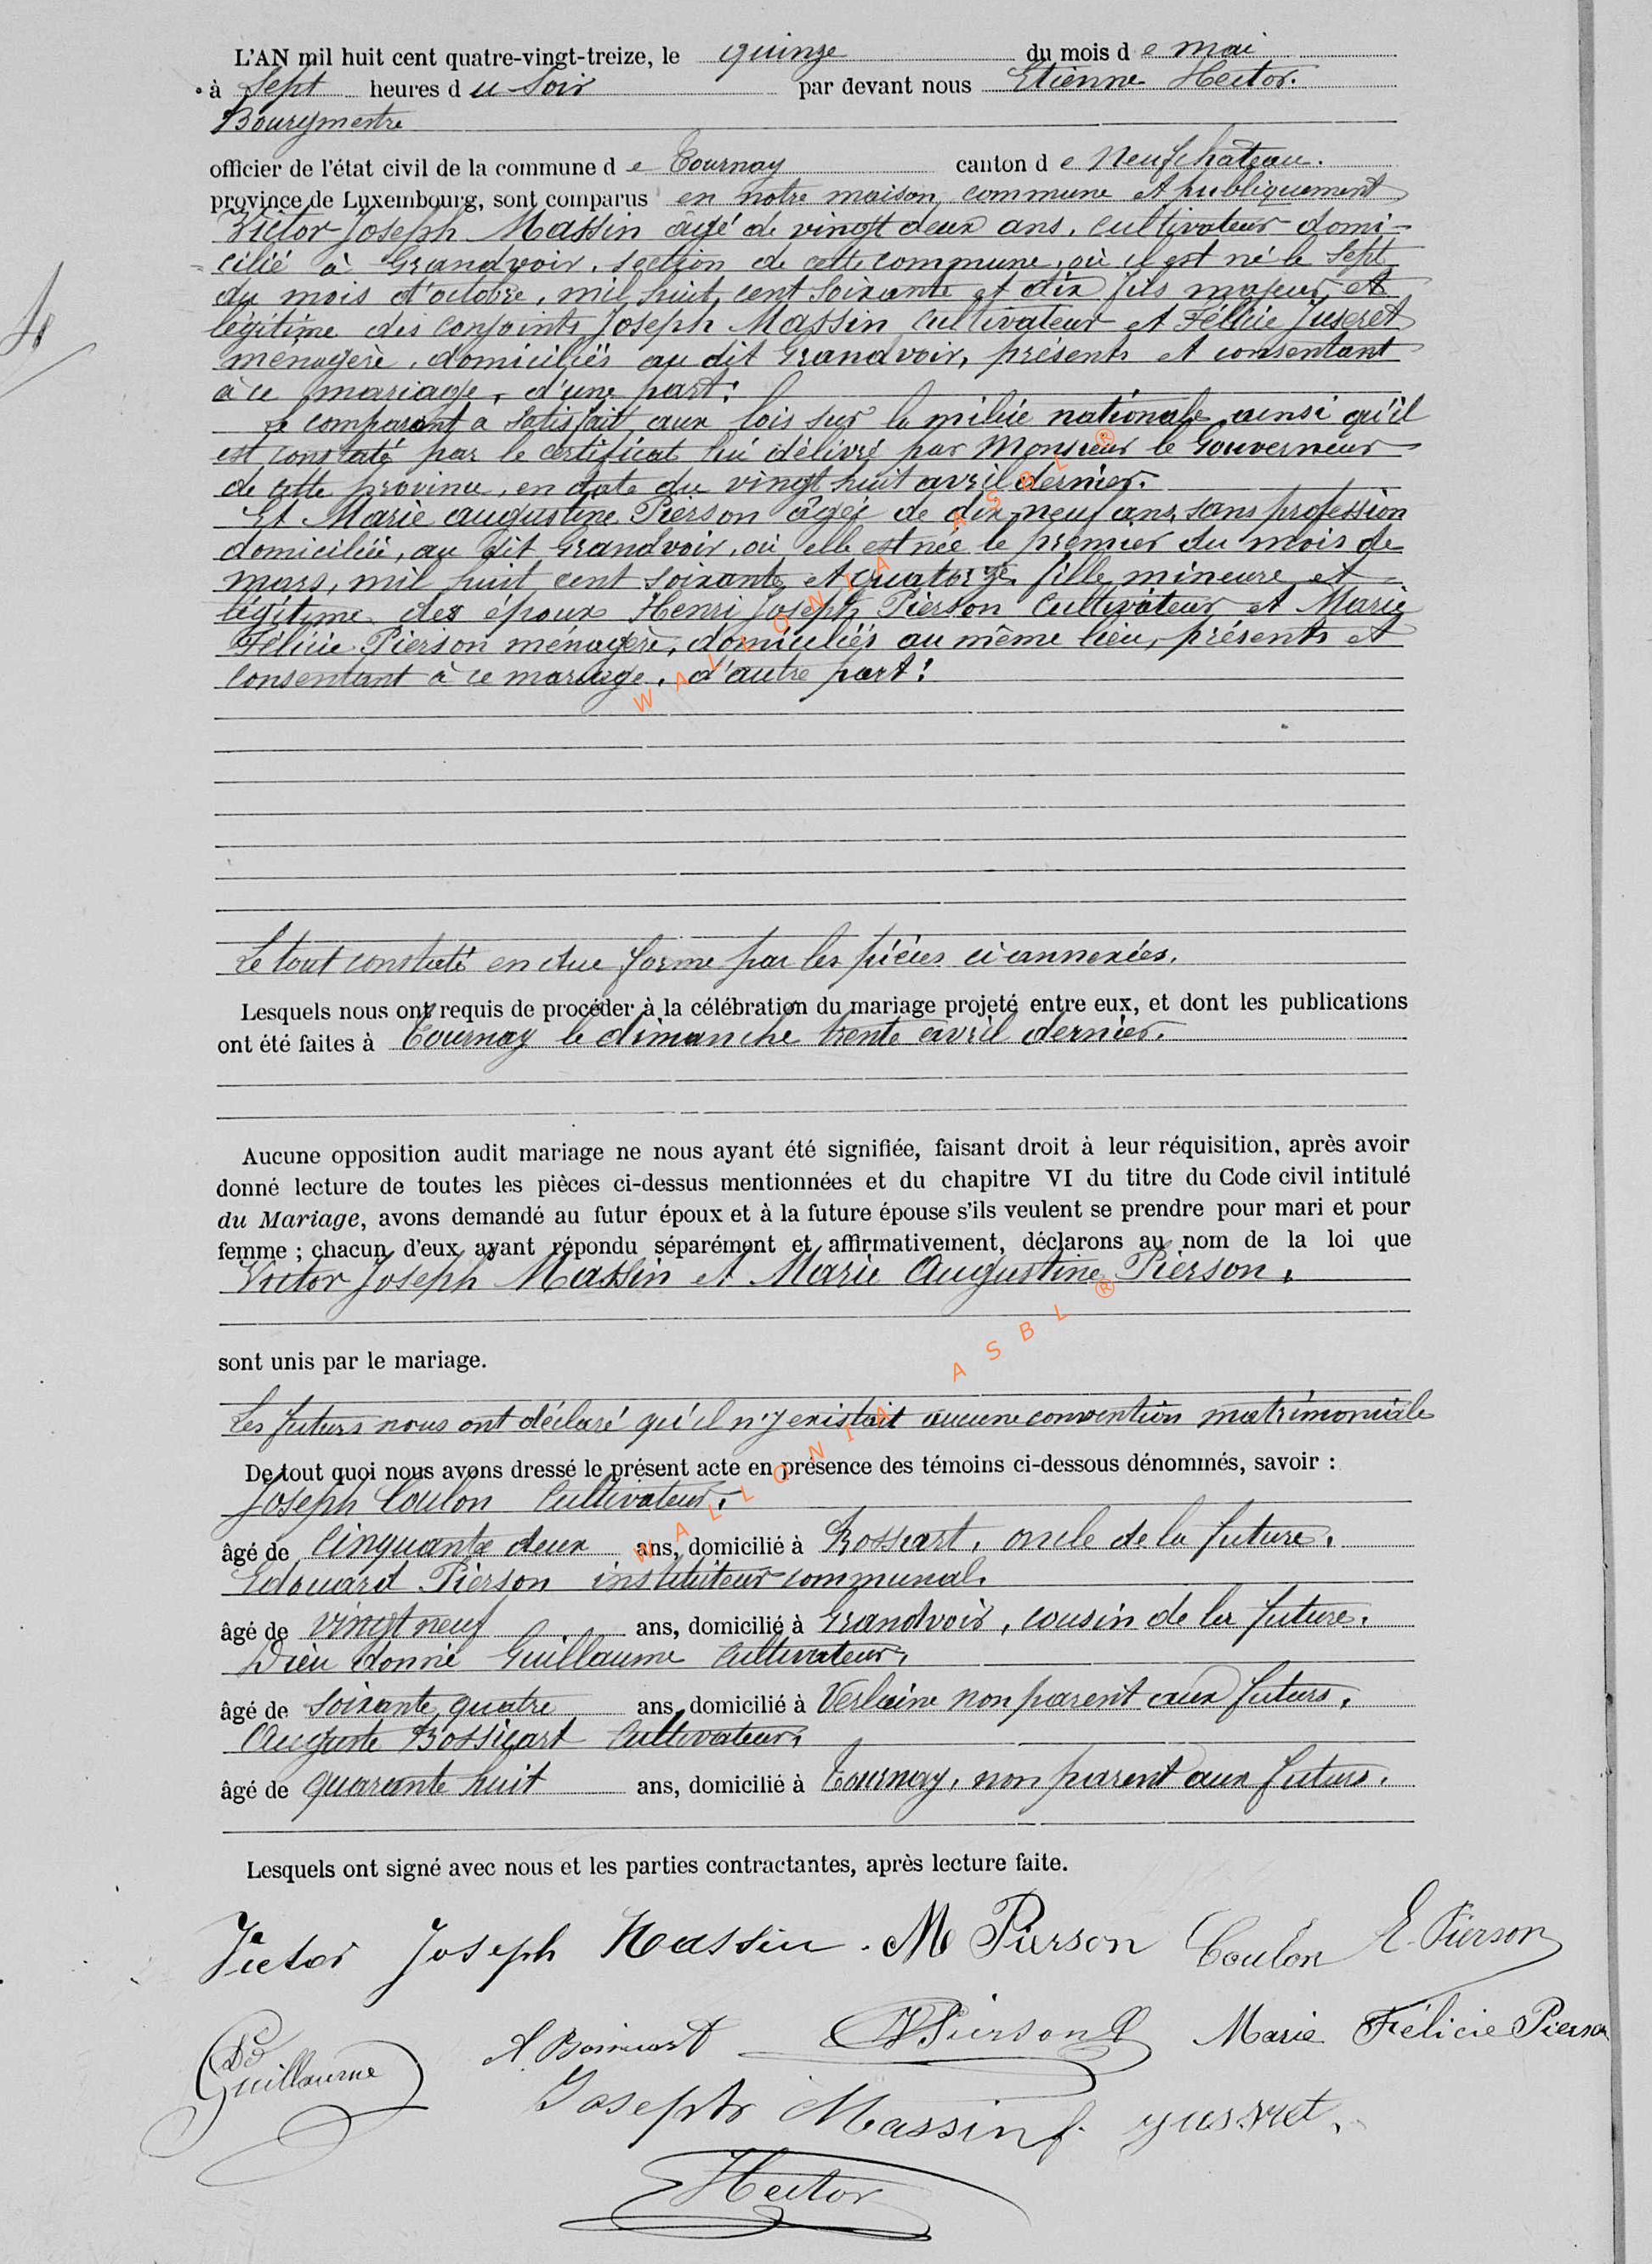 L'AN mil huit cent quatre-vingt-treize, le quinze du mois de mai
à Sept heures du Soir par devant nous Etienne Hector.
Bourgmestre
officier de l'état civil de la commune de Tournay canton de Neufchâteau.
province de Luxembourg, sont comparus en notre maison commune et publiquement
Victor Joseph Massin âgé de vingt deux ans, cultivateur domi-
cilié à Grandvoir, section de cette commune, où il est né le Sept
du mois d'octobre, mil huit cent soixante et dix fils majeur et
légitime des conjoints Joseph Massin cultivateur et Félicie Juseret
ménagère, domiciliés au dit Grandvoir, présents et consentant
à ce mariage, d'une part:
Le comparant a satisfait aux lois sur la milice nationale ainsi qu'il
est constaté par le certificat lui délivré par Monsieur le Gouverneur
de cette province, en date du vingt huit avril dernier.
Et Marie Augustine Pierson âgée de dix neuf ans, sans profession
domiciliée, au dit Grandvoir, où elle est née le premier du mois de
mars, mil huit cent soixante et quatorze, fille mineure et
légitime des époux Henri Joseph Pierson Cultivateur et Marie
Félicie Pierson ménagère, domiciliés au même lieu, présents et
consentant à ce mariage, d'autre part:
WALLONIA ASBL ®
Le tout constaté en due forme par les pièces ci-annexées.
Lesquels nous ont requis de procéder à la célébration du mariage projeté entre eux, et dont les publications
ont été faites à Tournay le dimanche trente avril dernier.
Aucune opposition audit mariage ne nous ayant été signifiée, faisant droit à leur réquisition, après avoir
donné lecture de toutes les pièces ci-dessus mentionnées et du chapitre VI du titre du Code civil intitulé
du Mariage, avons demandé au futur époux et à la future épouse s'ils veulent se prendre pour mari et pour
femme ; chacun d'eux ayant répondu séparément et affirmativement, déclarons au nom de la loi que
Victor Joseph Massin et Marie Augustine Pierson,
sont unis par le mariage.
Les futurs nous ont déclaré qu'il n'y existait aucune convention matrimoniale
WALLONIA ASBL ®
De tout quoi nous avons dressé le présent acte en présence des témoins ci-dessous dénommés, savoir :
Joseph Coulon Cultivateur,
âgé de Cinquante deux ans, domicilié à Rossart, oncle de la future,
Edouard Pierson instituteur communal,
âgé de vingt neuf ans, domicilié à Grandvoir, cousin de la future,
Dieu donné Guillaume Cultivateur,
âgé de soixante quatre ans, domicilié à Verlaine non parent aux futurs,
Auguste Bossicart Cultivateur,
âgé de quarante huit ans, domicilié à Tournay, non parent aux futurs.
Lesquels ont signé avec nous et les parties contractantes, après lecture faite.
Victor Joseph Massin. M Pierson Coulon E. Pierson
Dd Guillaume A Bossicart Pierson Marie Félicie Pierson
Joseph Massin f. juseret.
Hector